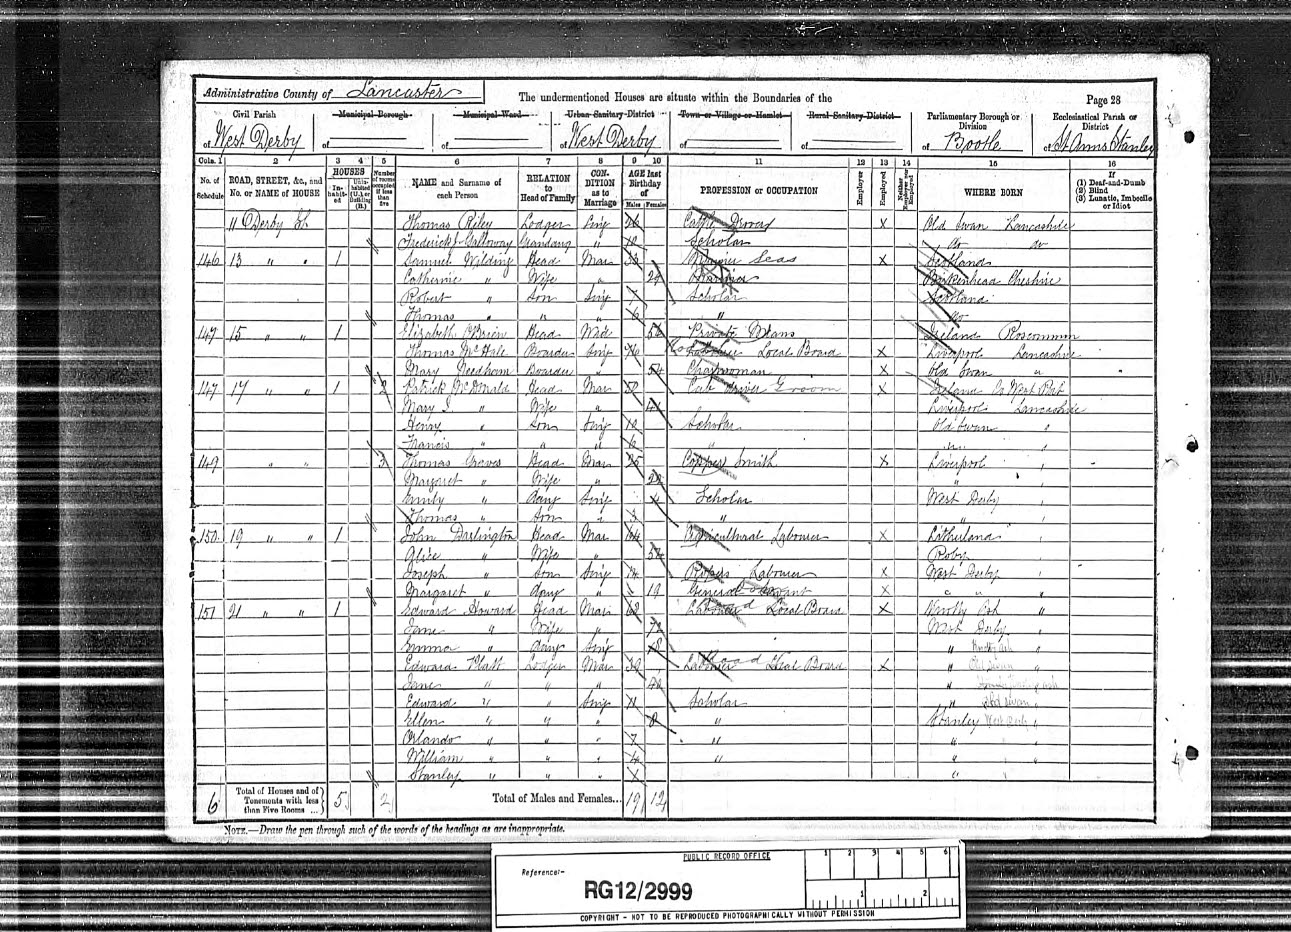 Administrative County of Lancaster
The undermentioned Houses are situate within the Boundaries of the
Page 28
Civil Parish
Municipal Borough
Municipal Ward
Urban Sanitary District
Town or Village or Hamlet
Rural Sanitary District
Parliamentary Borough or Division
Ecclesiastical Parish or District
of West Derby
of
of
of West Derby
of
of
of Bootle
of St Anns Stanley
Cols. 1 2 3 4 5 6 7 8 9 10 11 12 13 14 15 16
No. of Schedule
ROAD, STREET, &c., and No. or NAME of HOUSE
HOUSES
Inhabited
Uninhabited (U.) or Building (B.)
Number of rooms occupied if less than five
NAME and Surname of each Person
RELATION to Head of Family
CONDITION as to Marriage
AGE last Birthday of
Males
Females
PROFESSION or OCCUPATION
Employer
Employed
WHERE BORN
If
(1) Deaf-and-Dumb
(2) Blind
(3) Lunatic, Imbecile or Idiot
11 Derby St Thomas Riley Lodger Sing Cattle Drover X Old Swan Lancashire
Frederick Galloway " Scholar do do
146 13 " " 1 Samuel Wilding Head Mar 33 Seas X Scotland
Catherine " Wife " Birkenhead Cheshire
Robert " Son Sing 7 Scholar Scotland
Thomas " " " 6 " do
147 15 " " 1 Elizabeth O'Brien Head Wid Private Means Ireland Roscommon
Thomas McHale Boarder Sing Labourer Local Board X Liverpool Lancashire
Mary Needham Boarder " 54 Charwoman X Old Swan "
147 17 " " 1 2 Patrick McDonald Head Mar Driver Groom X Ireland
Mary " Wife " Liverpool Lancashire
Henry " Son Sing 10 Scholar Old Swan "
Francis " " " 6 " " "
149 " " 3 Thomas Graves Head Mar 25 Copper Smith X Liverpool "
Margaret " Wife " " "
Emily " Daug Sing 4 Scholar West Derby "
Thomas " Son " 3 " "
150 19 " " 1 John Darlington Head Mar 64 Agricultural Labourer X Litherland "
Alice " Wife " 54 Roby "
Joseph " Son Sing Labourer X West Derby "
Margaret " Daug " 19 General Servant X " " "
151 21 " " 1 Edward Howard Head Mar 62 Labourer Local Board X "
Jane " Wife " West Derby "
Emma " Daug Sing "
Edward Platt Lodger Mar Labourer Local Board X " Old Swan "
Jane " " " "
Edward " " Sing 11 Scholar " Old Swan "
Ellen " " " 8 " Stanley West Derby "
Orlando " " " 7 " " "
William " " " 4 " " "
Stanley " " " " "
6 Total of Houses and of Tenements with less than Five Rooms ... 5 2 Total of Males and Females... 19 12
NOTE.—Draw the pen through such of the words of the headings as are inappropriate.
PUBLIC RECORD OFFICE
Reference:-
RG12/2999
1 2 3 4 5 6
1 2
COPYRIGHT - NOT TO BE REPRODUCED PHOTOGRAPHICALLY WITHOUT PERMISSION